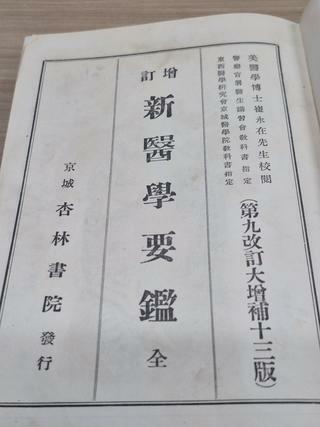 美醫學博士崔永在先生校閱
警察官署醫生講習會教科書指定
東西醫學硏究會京城醫學院敎科書指定
(第九改訂大增補十三版)
增訂
新醫學要鑑 全
京城 杏林書院 發行